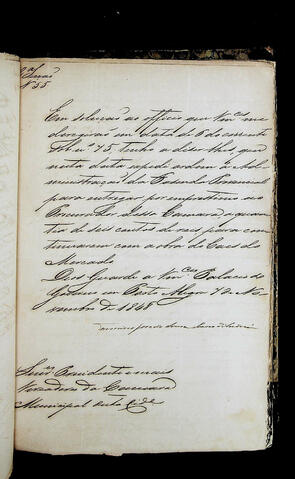 2ª Secção
N 55
Em solução ao officio que Vmces me
derigirão em data de 6 do corrente
sob nº 75, tenho a dizer-lhes, que
nesta data expedi ordem á Ad-
ministração da Fazenda Provincial
para entregar por emprestimo ao
Procurador dessa Camara, a quan-
tia de seis contos de reis para con-
tinuarem com a obra do Caes do
Mercado.
Deos Guarde a Vmces Palacio do
Governo em Porto Alegre 7 de No-
vembro de 1848
Senrs Presidente e mais
Vereadores da Camara
Municipal desta Cide